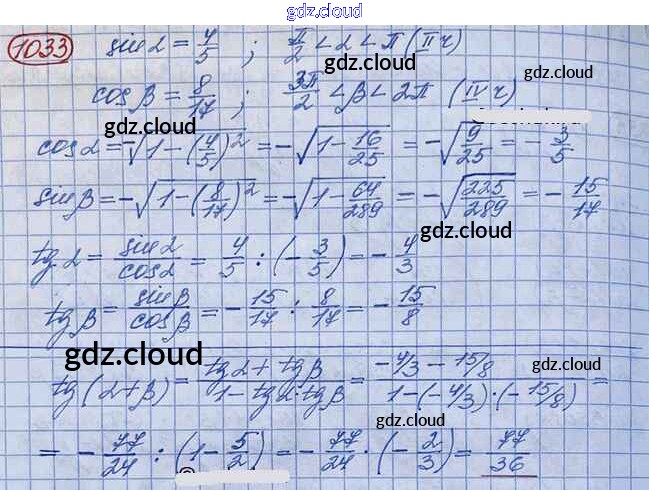 gdz.cloud
1033 sin α = 4/5 ; π/2 < α < π (II ч)
gdz.cloud
cos β = 8/17 ; 3π/2 < β < 2π (IV ч)
gdz.cloud
gdz.cloud
cos α = -√(1-(4/5)²) = -√(1-16/25) = -√(9/25) = -3/5
sin β = -√(1-(8/17)²) = -√(1-64/289) = -√(225/289) = -15/17
gdz.cloud
tg α = sin α/cos α = 4/5 : (-3/5) = -4/3
tg β = sin β/cos β = -15/17 : 8/17 = -15/8
gdz.cloud
gdz.cloud
tg(α+β) = (tg α + tg β)/(1 - tg α · tg β) = (-4/3 - 15/8)/(1-(-4/3)·(-15/8)) =
gdz.cloud
= -77/24 : (1 - 5/2) = -77/24 · (-2/3) = 77/36
gdz.cloud